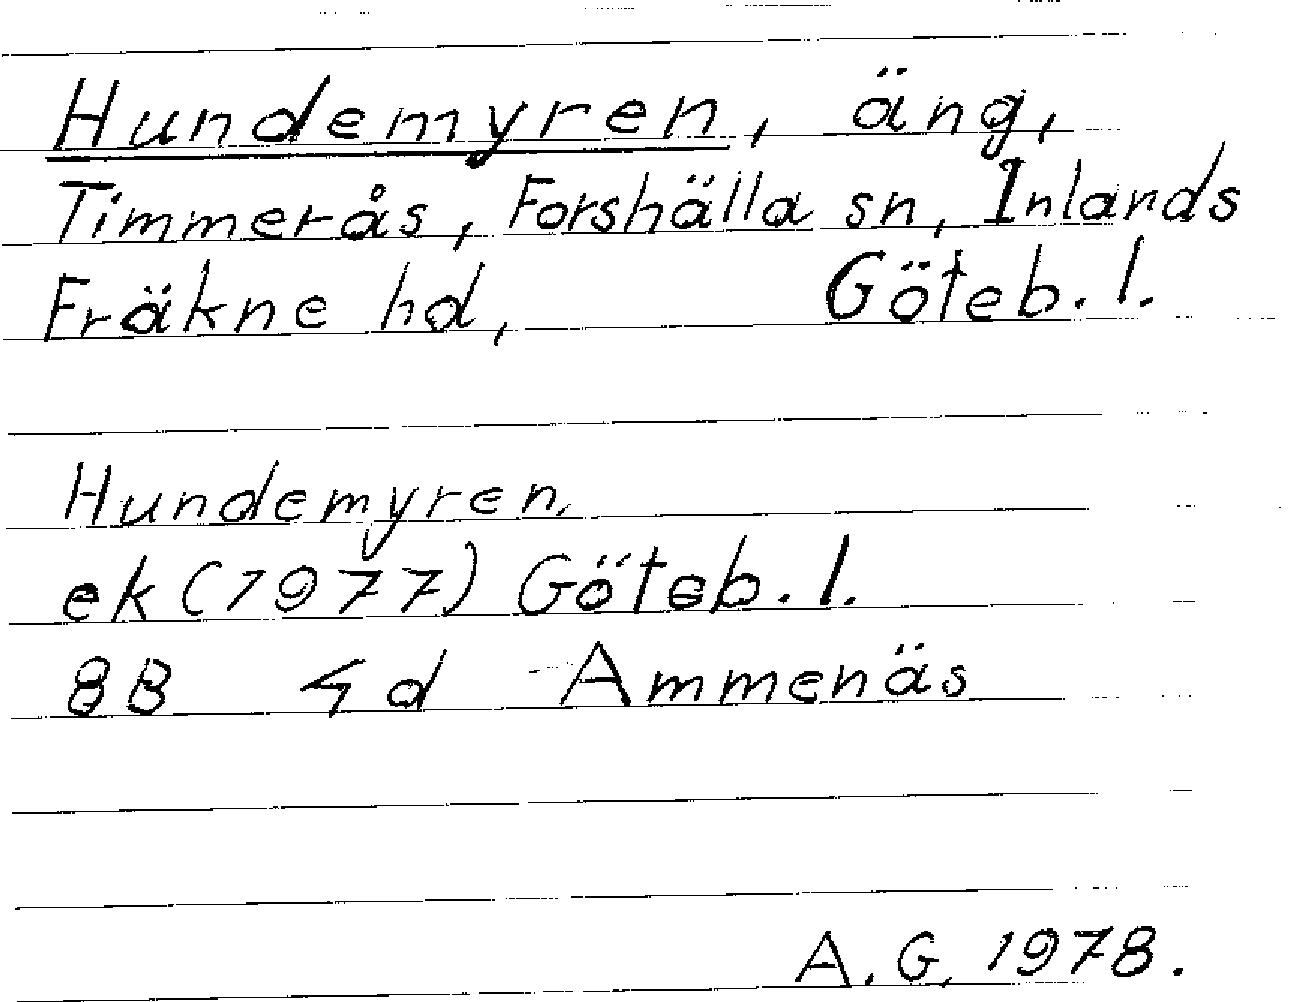 Hundemyren, äng,
Timmerås, Forshälla sn, Inlands
Fräkne hd, Göteb. l.
Hundemyren,
ek (1977) Göteb. l.
8B 4d Ammenäs
A. G. 1978.